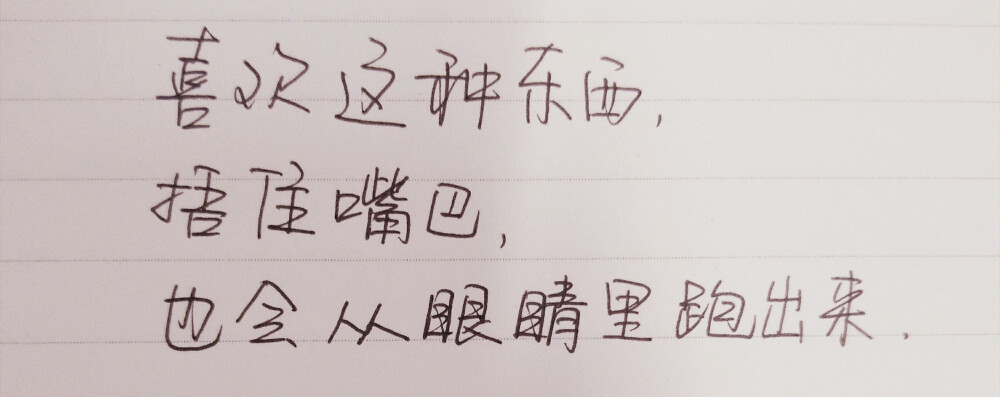 喜欢这种东西,
捂住嘴巴,
也会从眼睛里跑出来.